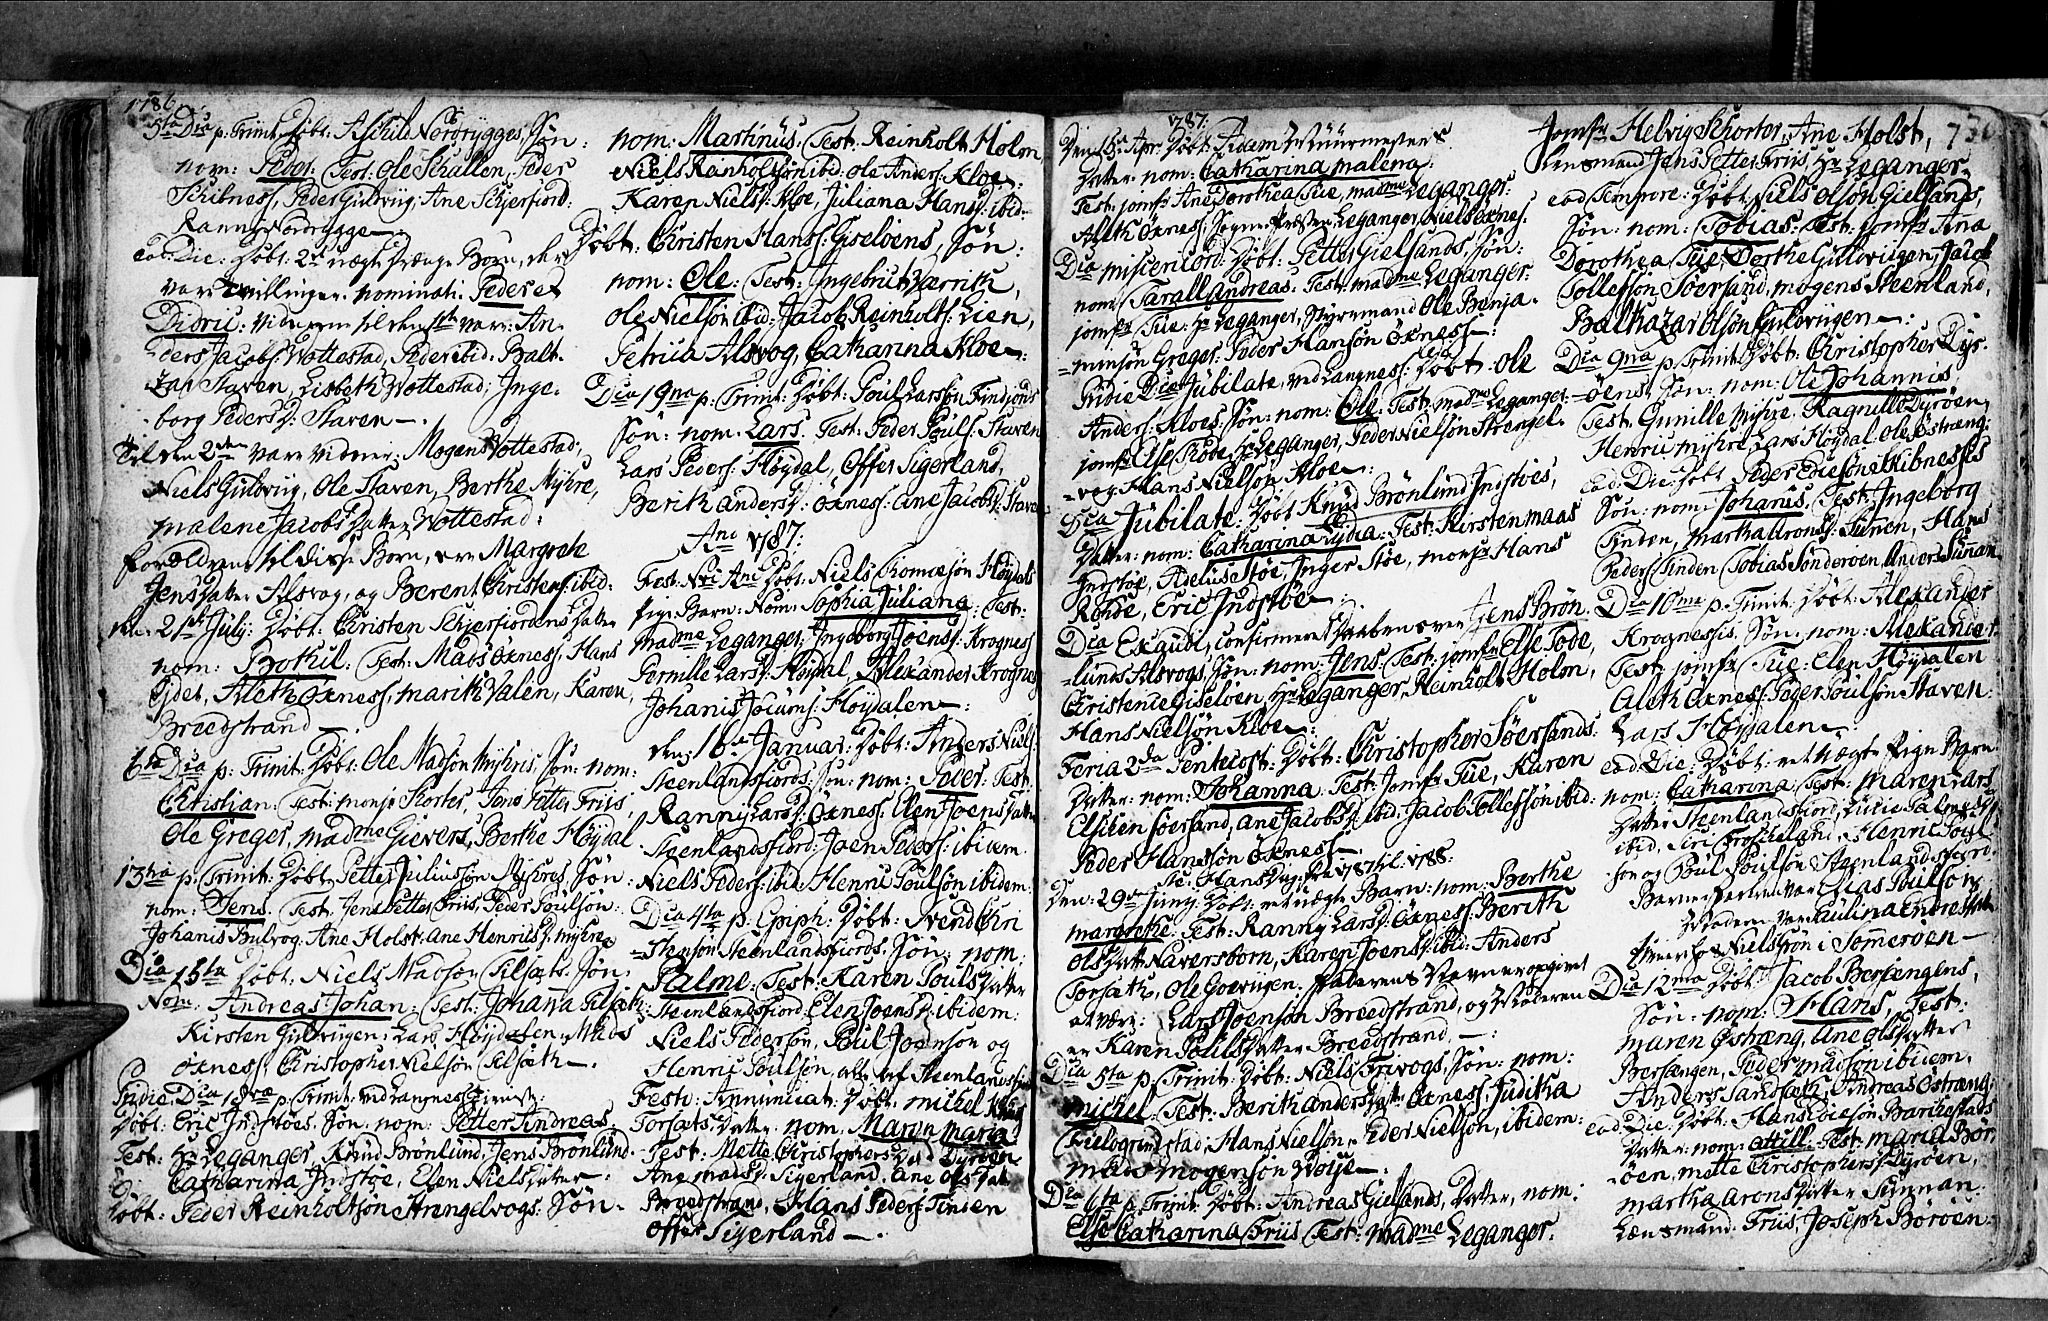 1786.
5ta Dia p: Trinit: Døbt: Aschild Nordrygges, Søn:
nom: Peder. Test: Ole Schallen, Peder
Skibnes, Peder Guldvig, Ane Skjerfiord:
Ranny Nordrygge —.
Eod: Die: Døbt: 2de uægte Drenge Børn, der
vare Tvillinger. nominati: Peder et
Didric: Vidnerne til den 1ste vare: An-
ders Jacobs: Vottestad, Peder ibid: Balt-
zar Staven, Lisbeth Vottestad, Inge-
borg Peders D: Staven —.
Til den 2den vare Vidner: Mogens Vottestad,
Niels Guldvig, Ole Staven, Berthe Myhre,
Malene Jacobs Datter Vottestad:
Forældrene til disse Børn, ere Margrete
Jens Datter Alsvog, og Berent Christens: ibid:
den 21st Julij: Døbt: Christen Skjerfiordens Datter
nom: Bothil: Test: Mats Øxness: Hans
Eydet, Aleth Øxness, Marith Valen, Karen
Breedstrand —.
6ta Dia p: Trinit: Døbt: Ole Madsøn Myhris, Søn: nom:
Christian: Test: Monsr Skorter, Jens Petter Friis,
Ole Greger, Madme Sievers, Berthe Høydal.
13tia p: Trinit: Døbt: Petter Juliusøn Myhres, Søn:
nom: Jens. Test: Jens Petter Friis, Peder Poulsøn:
Johanis Bulvog: Ane Holst: Ane Henrics D: Myhre
Dia 15ta Døbt: Niels Madsøn Tilsæts: Søn:
Nom: Andreas Johan: Test: Johanna Tilsæth:
Kirsten Guldvigen: Lars Høydalen: Mads
Øxness, Christopher Nielsøn Tilsæth —.
Pridie Dia 18væ p: Trinit: ved Langness:
Døbt: Eric Indstøes. Søn: nom: Petter Andreas.
Test: Hr Leganger, Knud Brønlund, Jens Brønlund:
Catharina Indstøe, Elen Niels Datter:
Døbt: Peder Reinholtsøn Strengelvogs: Søn.
nom: Martinus, Test: Reinholt Holm
Niels Reinholtsøn ibid: Ole Anders: Kloe:
Karen Niels D: Kloe, Juliana Hans D: ibid:
Døbt: Christen Hanss: Giseløens, Søn:
nom: Ole: Test: Ingebrict Værrith,
Ole Nielsøn ibid: Jacob Reinholts: Lien,
Petricia Alsvog, Catharina Kloe.
Dia 19na p: Trinit: Døbt: Poul Larssøn Findjords
Søn: nom. Lars. Test: Peder Pouls: Staven
Lars Peders: Høydal, Offer Sigerland,
Berith Anders D: Øxnes: Ane Jacobs D: Staven
Ano 1787:
Fest: Novi Ani Døbt: Niels Thomæsøn Høydals
Pige Barn: Nom: Sophia Juliana: Test:
Madme Leganger: Ingeborg Joens D: Krognes
Pernille Lars D: Høydal, Alexander Krognes
Johanis Jocums: Høydalen —:
den: 16de Januar: Døbt: Anders Niels:
Steenlandsfiords: Søn: nom: Peder: Test:
Ranny Lars D: Øxness: Elen Joens Datter
Steenlandsfiord: Joen Peders: ibidem.
Niels Peders: ibid: Henric Poulsøn ibidem:
Dia 4ta p: Epiph: Døbt: Svend Chri-
-stensøn Steenlandsfiords: Søn: nom:
Palme: Test: Karen Pouls Datter
Steenlandsfiord: Elen Joens D: ibidem:
Niels Pedersøn, Poul Joensøn og
Henric Poulsøn, alle af Steenlandsfiord
Festo Annunciat: Døbt: Michel
Torsæts: Datter: nom. Maren Maria
Test: Mette Christophers Dat: Dyrøen
Ane Mads D: Sigerland: Ane Ols Dat:
Breedstrand, Hans Peders: Tinden
Offer Sigerland —.
1787.
Den: 15de Apr: Døbt: Adam Muurmesters
Datter: nom: Catharina Malena:
Test: Jomfr Ane Dorothea Tue, Madme Leganger:
Aleth Øxness: Sogne Præsten Leganger, Niels Øxnes:
Dia Misericord: Døbt: Petter Gielsunds, Søn:
nom: Tarall Andreas: Test: Madme Leganger:
Jomfr Tue: Hr Leganger, Styrmand Ole Benja-
=minsøn Greger: Peder Hansøn Øxness —:
Pridie Dia Jubilate, ved Langness: Døbt: Ole
Anders: Kloes Søn: nom: Ole: Test: Madme Leganger.
Jomfr Else Rode, Hr Leganger, Peder Nielsøn Strengel-
=vog: Hans Nielsøn Kloe —:
Dia Jubilate: Døbt Knud Brønlund Indstøes,
Datter: nom: Catharina Lydia: Test: Kirsten Maas
Indstøe, Adelus Støe, Inger Støe, Monsr Hans
Rohde, Eric Indstøe —:
Dia Exaudi, confirmeret Daaben over Jens Brøn-
=lunds Alsvogs, Søn: nom: Jens. Test: Jomfr Else Tode,
Christence Giseløen, Hr Leganger, Reinholt Holm,
Hans Nielsøn Kloe —:
Feria 2da Pentecost: Døbt: Christopher Søersands:
Datter: nom: Johanna: Test: Jomfr Tue, Karen
Elsiken Søersand, Ane Jacobs D: ibid: Jacob Tollefsøn ibid:
Peder Hansøn Øxness —.
Stc: Hans Dag fra 1787 til 1788:
Den: 29de Junij: Døbt: et uægte Barn: nom: Berthe
Margrethe: Test: Ranny Lars D: Øxness: Berith
Ols Datt: Naversborn, Karen Joens D: ibid: Anders
Torsæth, Ole Goevigen. Faderens Navn er opgivet
at være: Lars Joensøn Breedstrand, og Moderen
er Karen Pouls Datter Breedstrand, —:
Dia 5ta p: Trinit: Døbt: Niels Frivogs, Søn: nom:
Michel: Test: Berith Anders Dat: Øxness: Juditha
Tielogrundstad: Hans Nielsøn, Peder Nielsøn, ibidem:
Mads Mogensøn Vøtje —.
Dia 6ta p: Trinit: Døbt: Andreas Gielsunds, Datter, nom:
Else Catharina Friis Test: Madme Leganger.
Jomfr Helvig Skorter, Ane Holst, 73
Lensmand Jens Petter Friis, Hr Leganger.
eod Tempore: Døbt: Niels Olsøn Gielsunds,
Søn: nom: Tobias: Test: Jomfr Ana
Dorothea Tue: Dorthe Guldvigen, Jacob
Tollefsøn Søersand, Mogens Steenland,
Balthazar Olsøn Guldvigen —:
Dia 9na p: Trinit: Døbt: Christopher Dyr-
=øens, Søn: nom: Ole Johannis
Test: Gunille Myhre: Ragnille Dyrøen,
Henric Myhre, Lars Høydal, Ole Østræng:
ead: Die: Døbt Peder Ediesøn Skibnesses
Søn: nom: Johanis, Test: Ingeborg
Tinden, Martha Arons D: Sunen, Hans
Peders: Tinden Tobias Sønderøen Anders Sunnan
Dia 10ma p: Trinit: Døbt: Alexander
Krognessis, Søn: nom: Alexander
Test: Jomfr Tue: Elen Høydalen
Aleth Øxness: Peder Poulsøn Staven:
Lars Høydalen —.
ead: Die: Døbt: et uægte Pige Barn
nom: Catharina: Test: Maren Lars
Datter Steenlandsfiord, Lucie Palmes D:
ibid: Siri Froskeland: Henric Poul-
søn og Poul Poulsøn Steenlandsfiord.
Barnefaderen var Elias Poulsøn,
Moderen var Paulina Endres Dat.
Niels Søn i Sommerøen —
Dia 12ma Døbt: Jacob Bersængens,
Søn: nom: Hans, Test:
Maren Østræng, Ane Ols Datter
Bersængen, Peder Madsøn ibidem,
Anders Sandsæth, Andreas Østræng:
ead: Die: Døbt: Hans Edissøn Barkestads
Datter: nom: Attill: Test: Maria Bør-
=øen, Mette Christophers D: Dyrøen,
Martha Arons Datter Sunnan:
Lænsmand: Friis, Joseph Børøen: